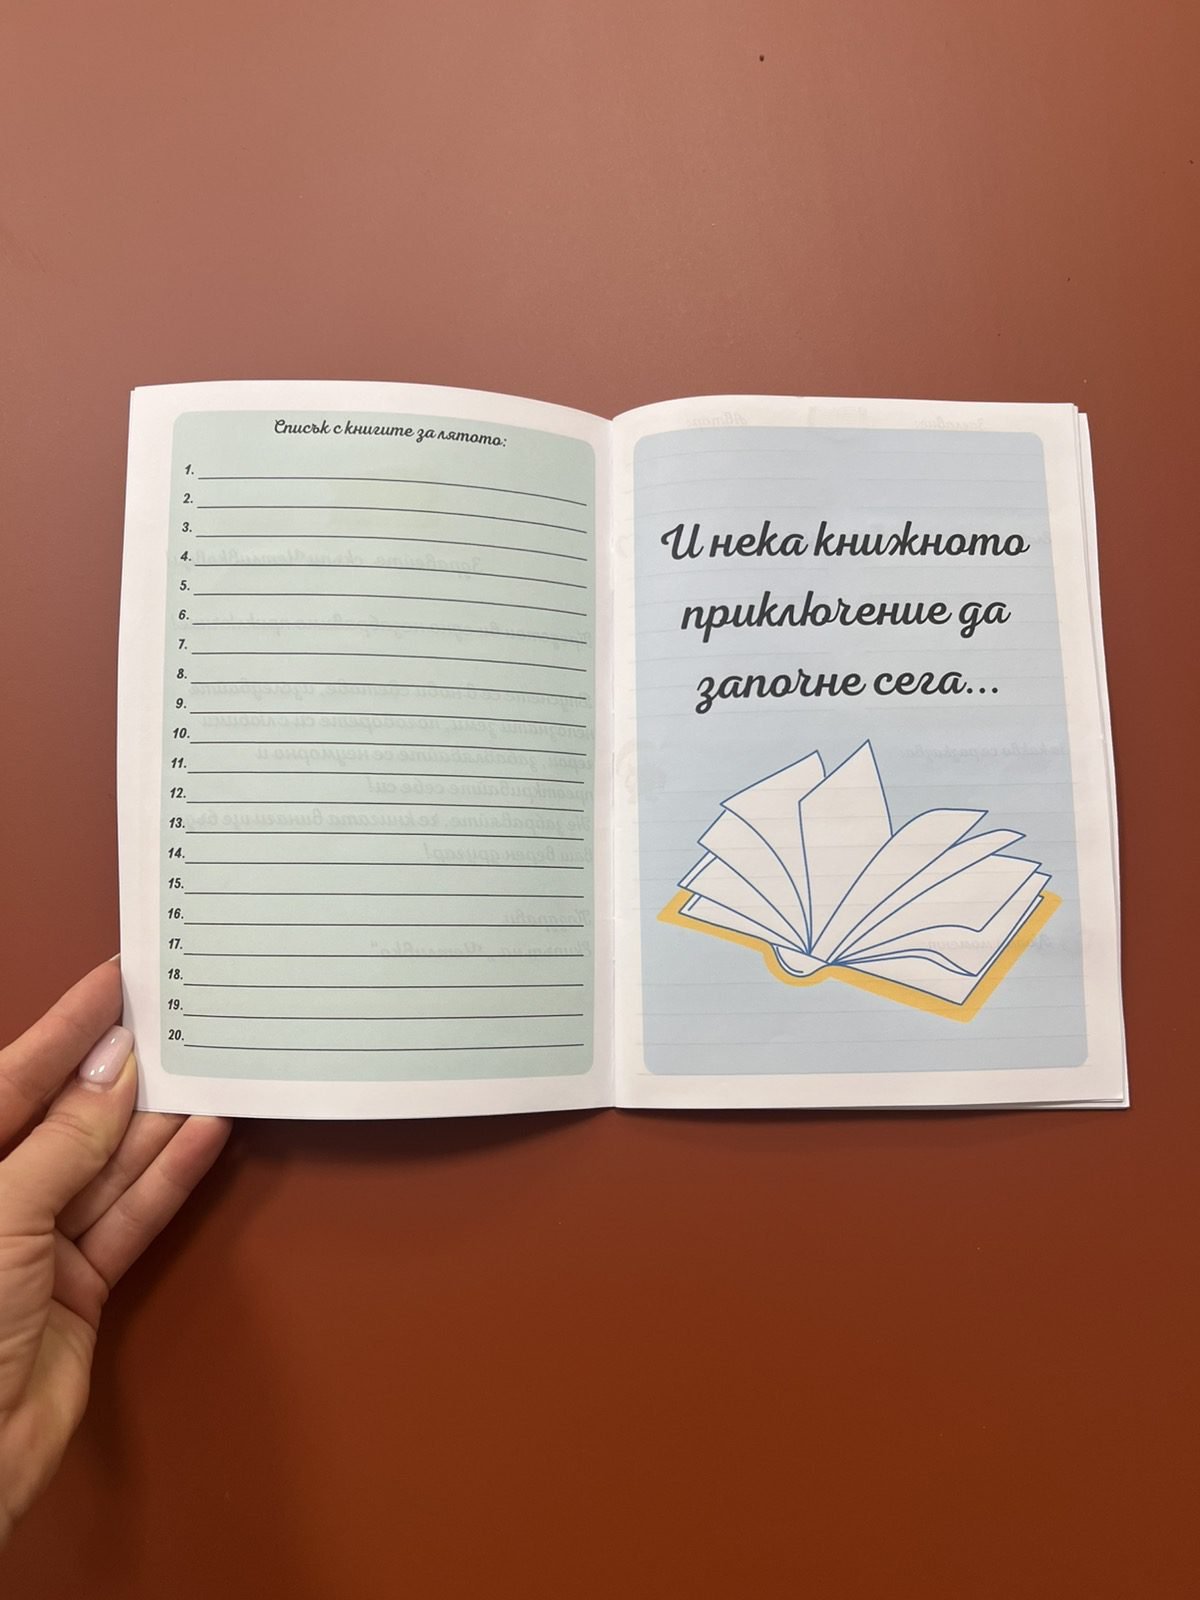 Списък с книгите за лятото:
1.
2.
3.
4.
5.
6.
7.
8.
9.
10.
11.
12.
13.
14.
15.
16.
17.
18.
19.
20.
И нека книжното
приключение да
започне сега...